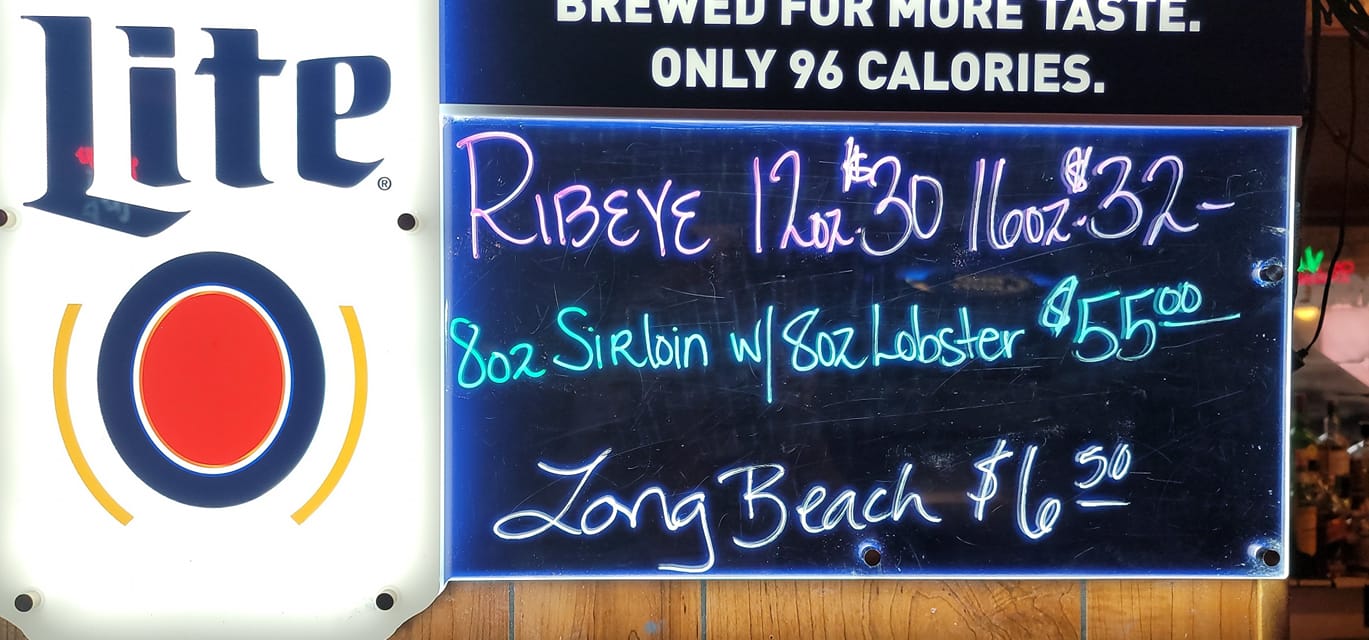 Lite®
BREWED FOR MORE TASTE.
ONLY 96 CALORIES.
RIBEYE 12oz $30 16oz $32-
8oz Sirloin w/ 8oz Lobster $55.00
Long Beach $6 50